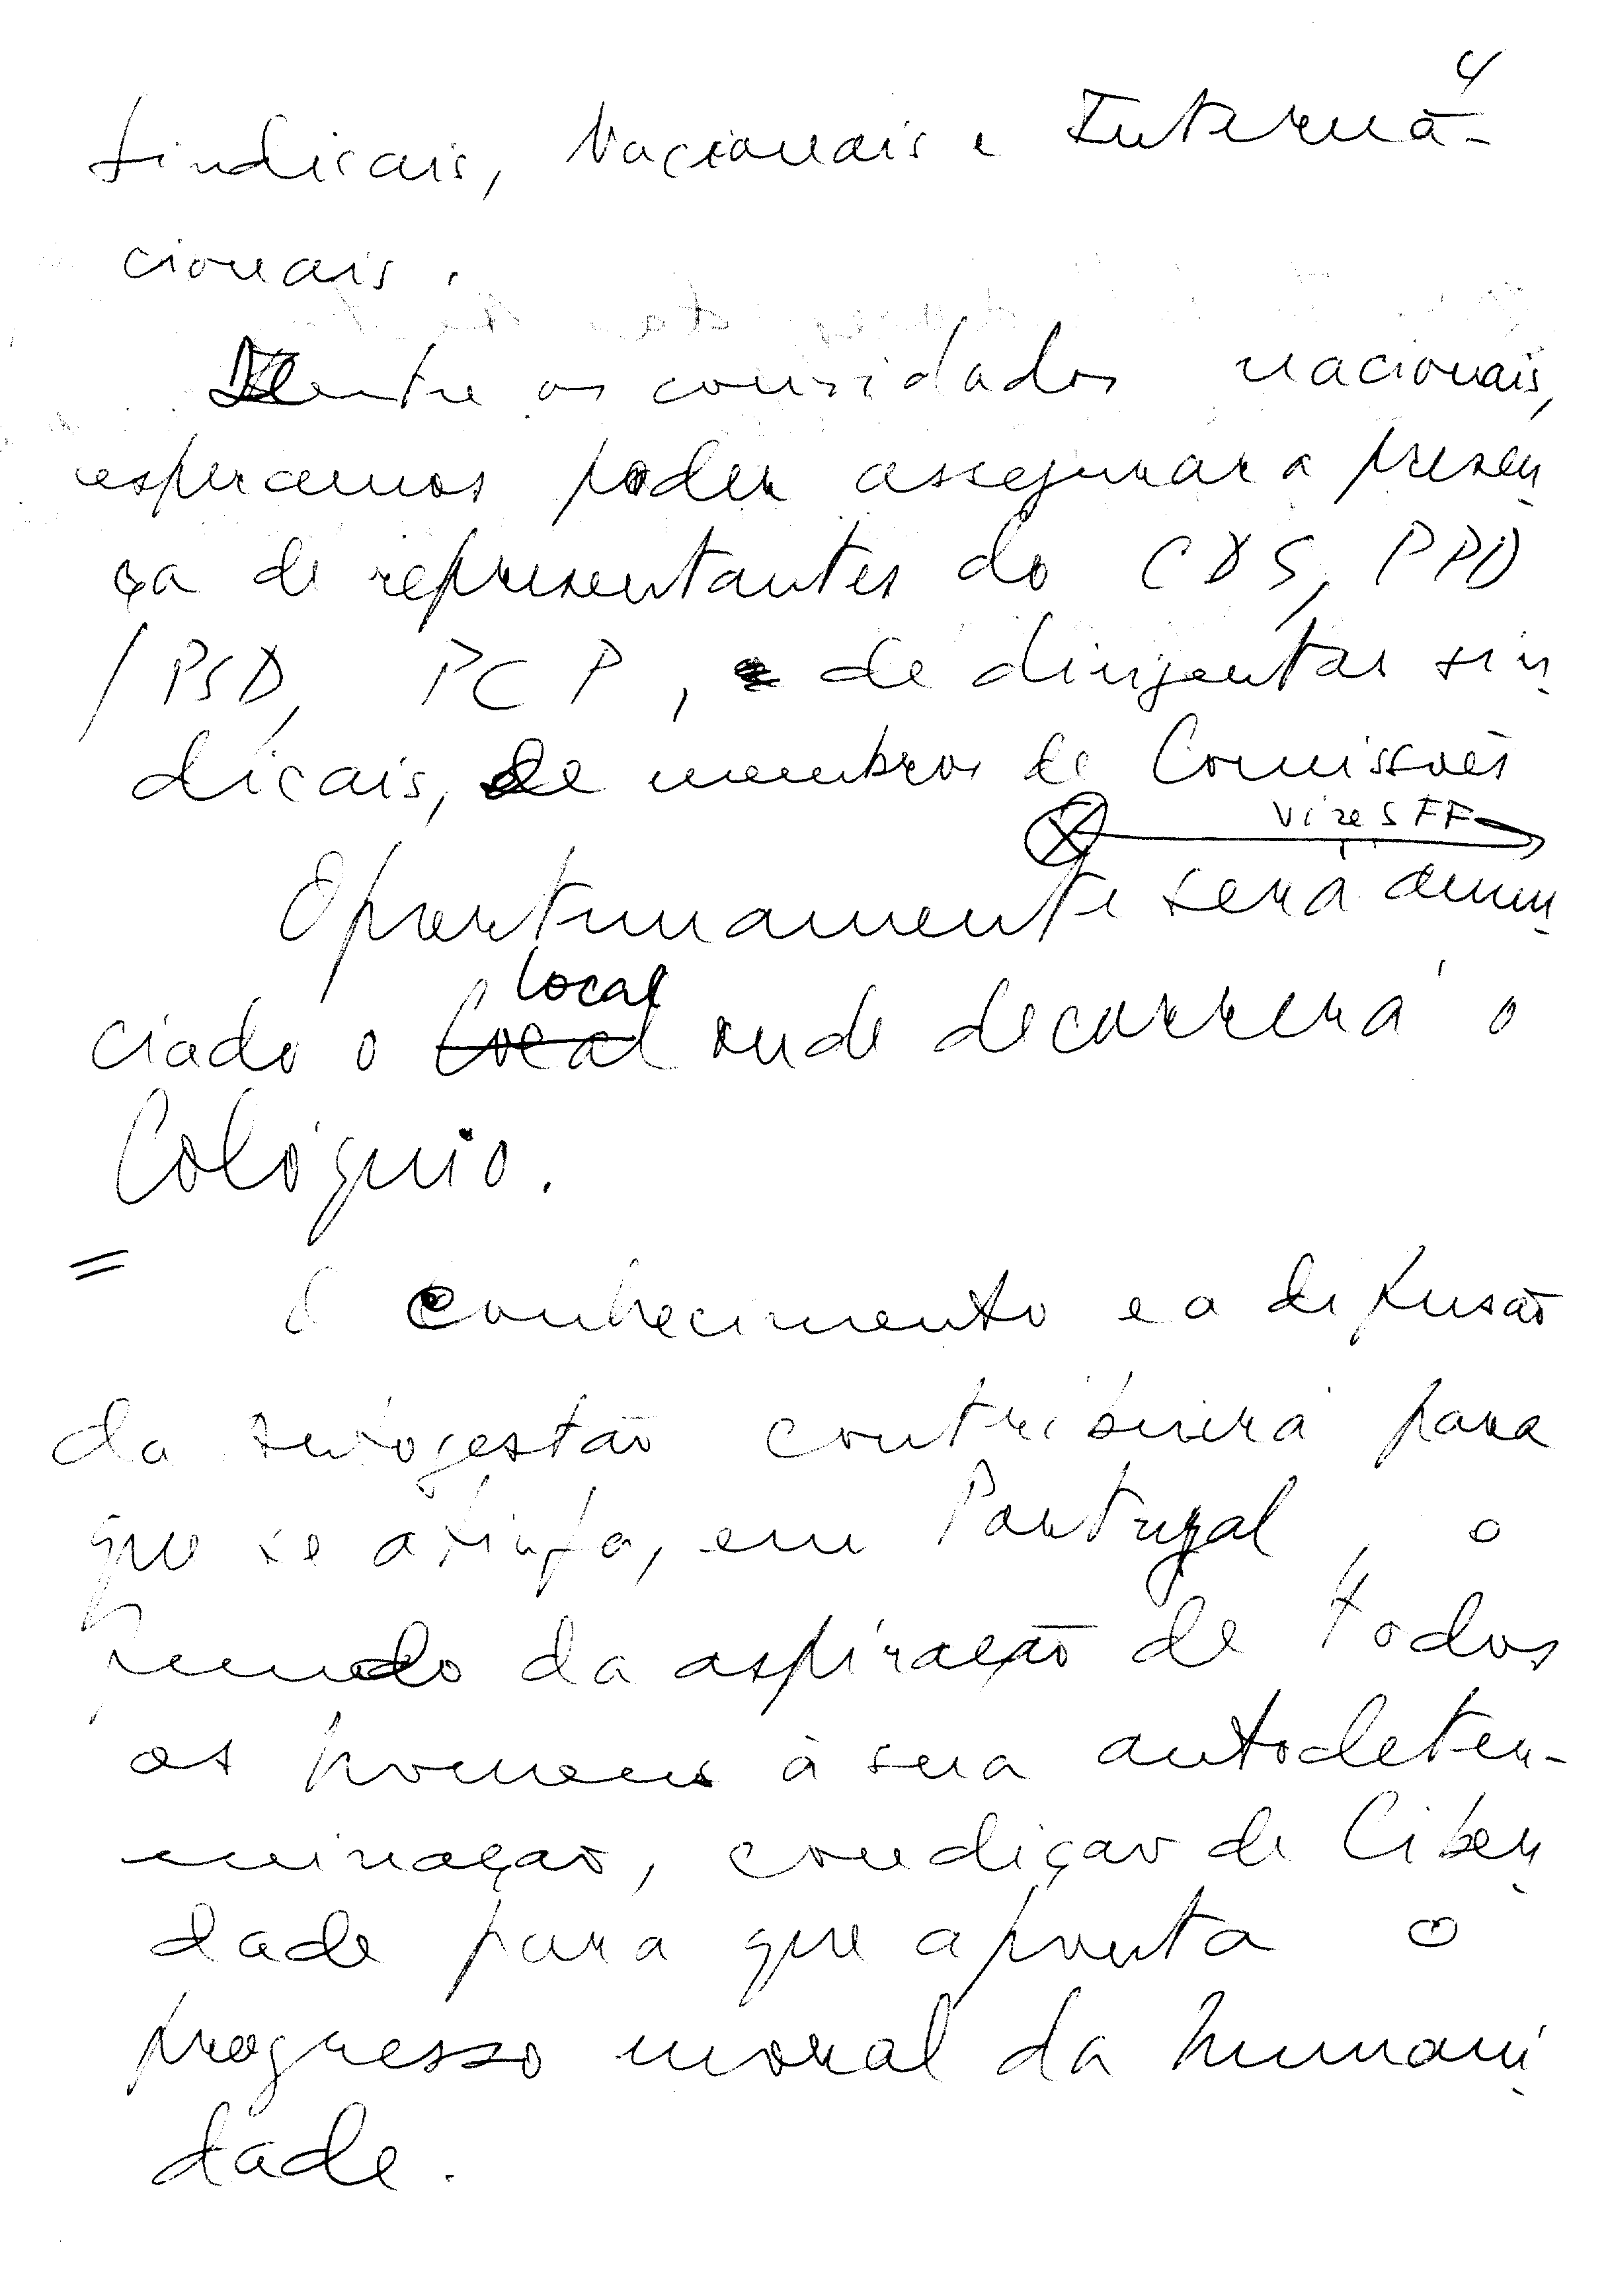 4
Sindicais, Nacionais e Interna-
cionais.
Dentre os convidados nacionais,
esperamos poder assegurar a presen
ça de representantes do CDS, PPD
/PSD, PCP, de dirigentes sin
dicais, de membros de Comissões
Oportunamente será anun
ciado o local local onde decorrerá o
Colóquio.
= O conhecimento e a difusão
da autogestão contribuirá para
que se atinja, em Portugal, o
fundo da aspiração de todos
os homens à sua autodeter-
minação, condição de liber
dade para que aponta o
progresso moral da humani
dade.